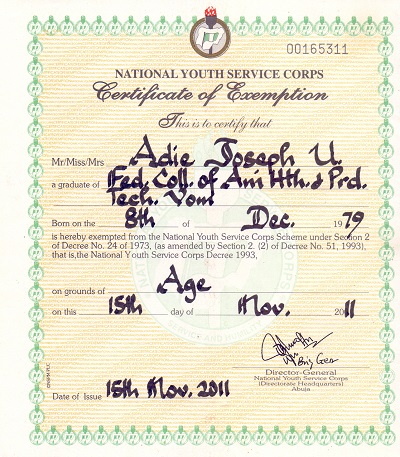 00165311
NATIONAL YOUTH SERVICE CORPS
Certificate of Exemption
This is to certify that
Mr/Miss/Mrs Adie Joseph U.
a graduate of Fed. Coll. of Ani Hth. & Prd.
Tech. Vom
Born on the 8th of Dec. 1979
is hereby exempted from the National Youth Service Corps Scheme under Section 2
of Decree No. 24 of 1973, (as amended by Section 2. (2) of Decree No. 51, 1993),
that is,the National Youth Service Corps Decree 1993,
on grounds of Age
on this 15th day of Nov. 2011
Brig Gen
Director-General
National Youth Service Corps
(Directorate Headquarters)
Abuja.
Date of Issue 15th Nov. 2011